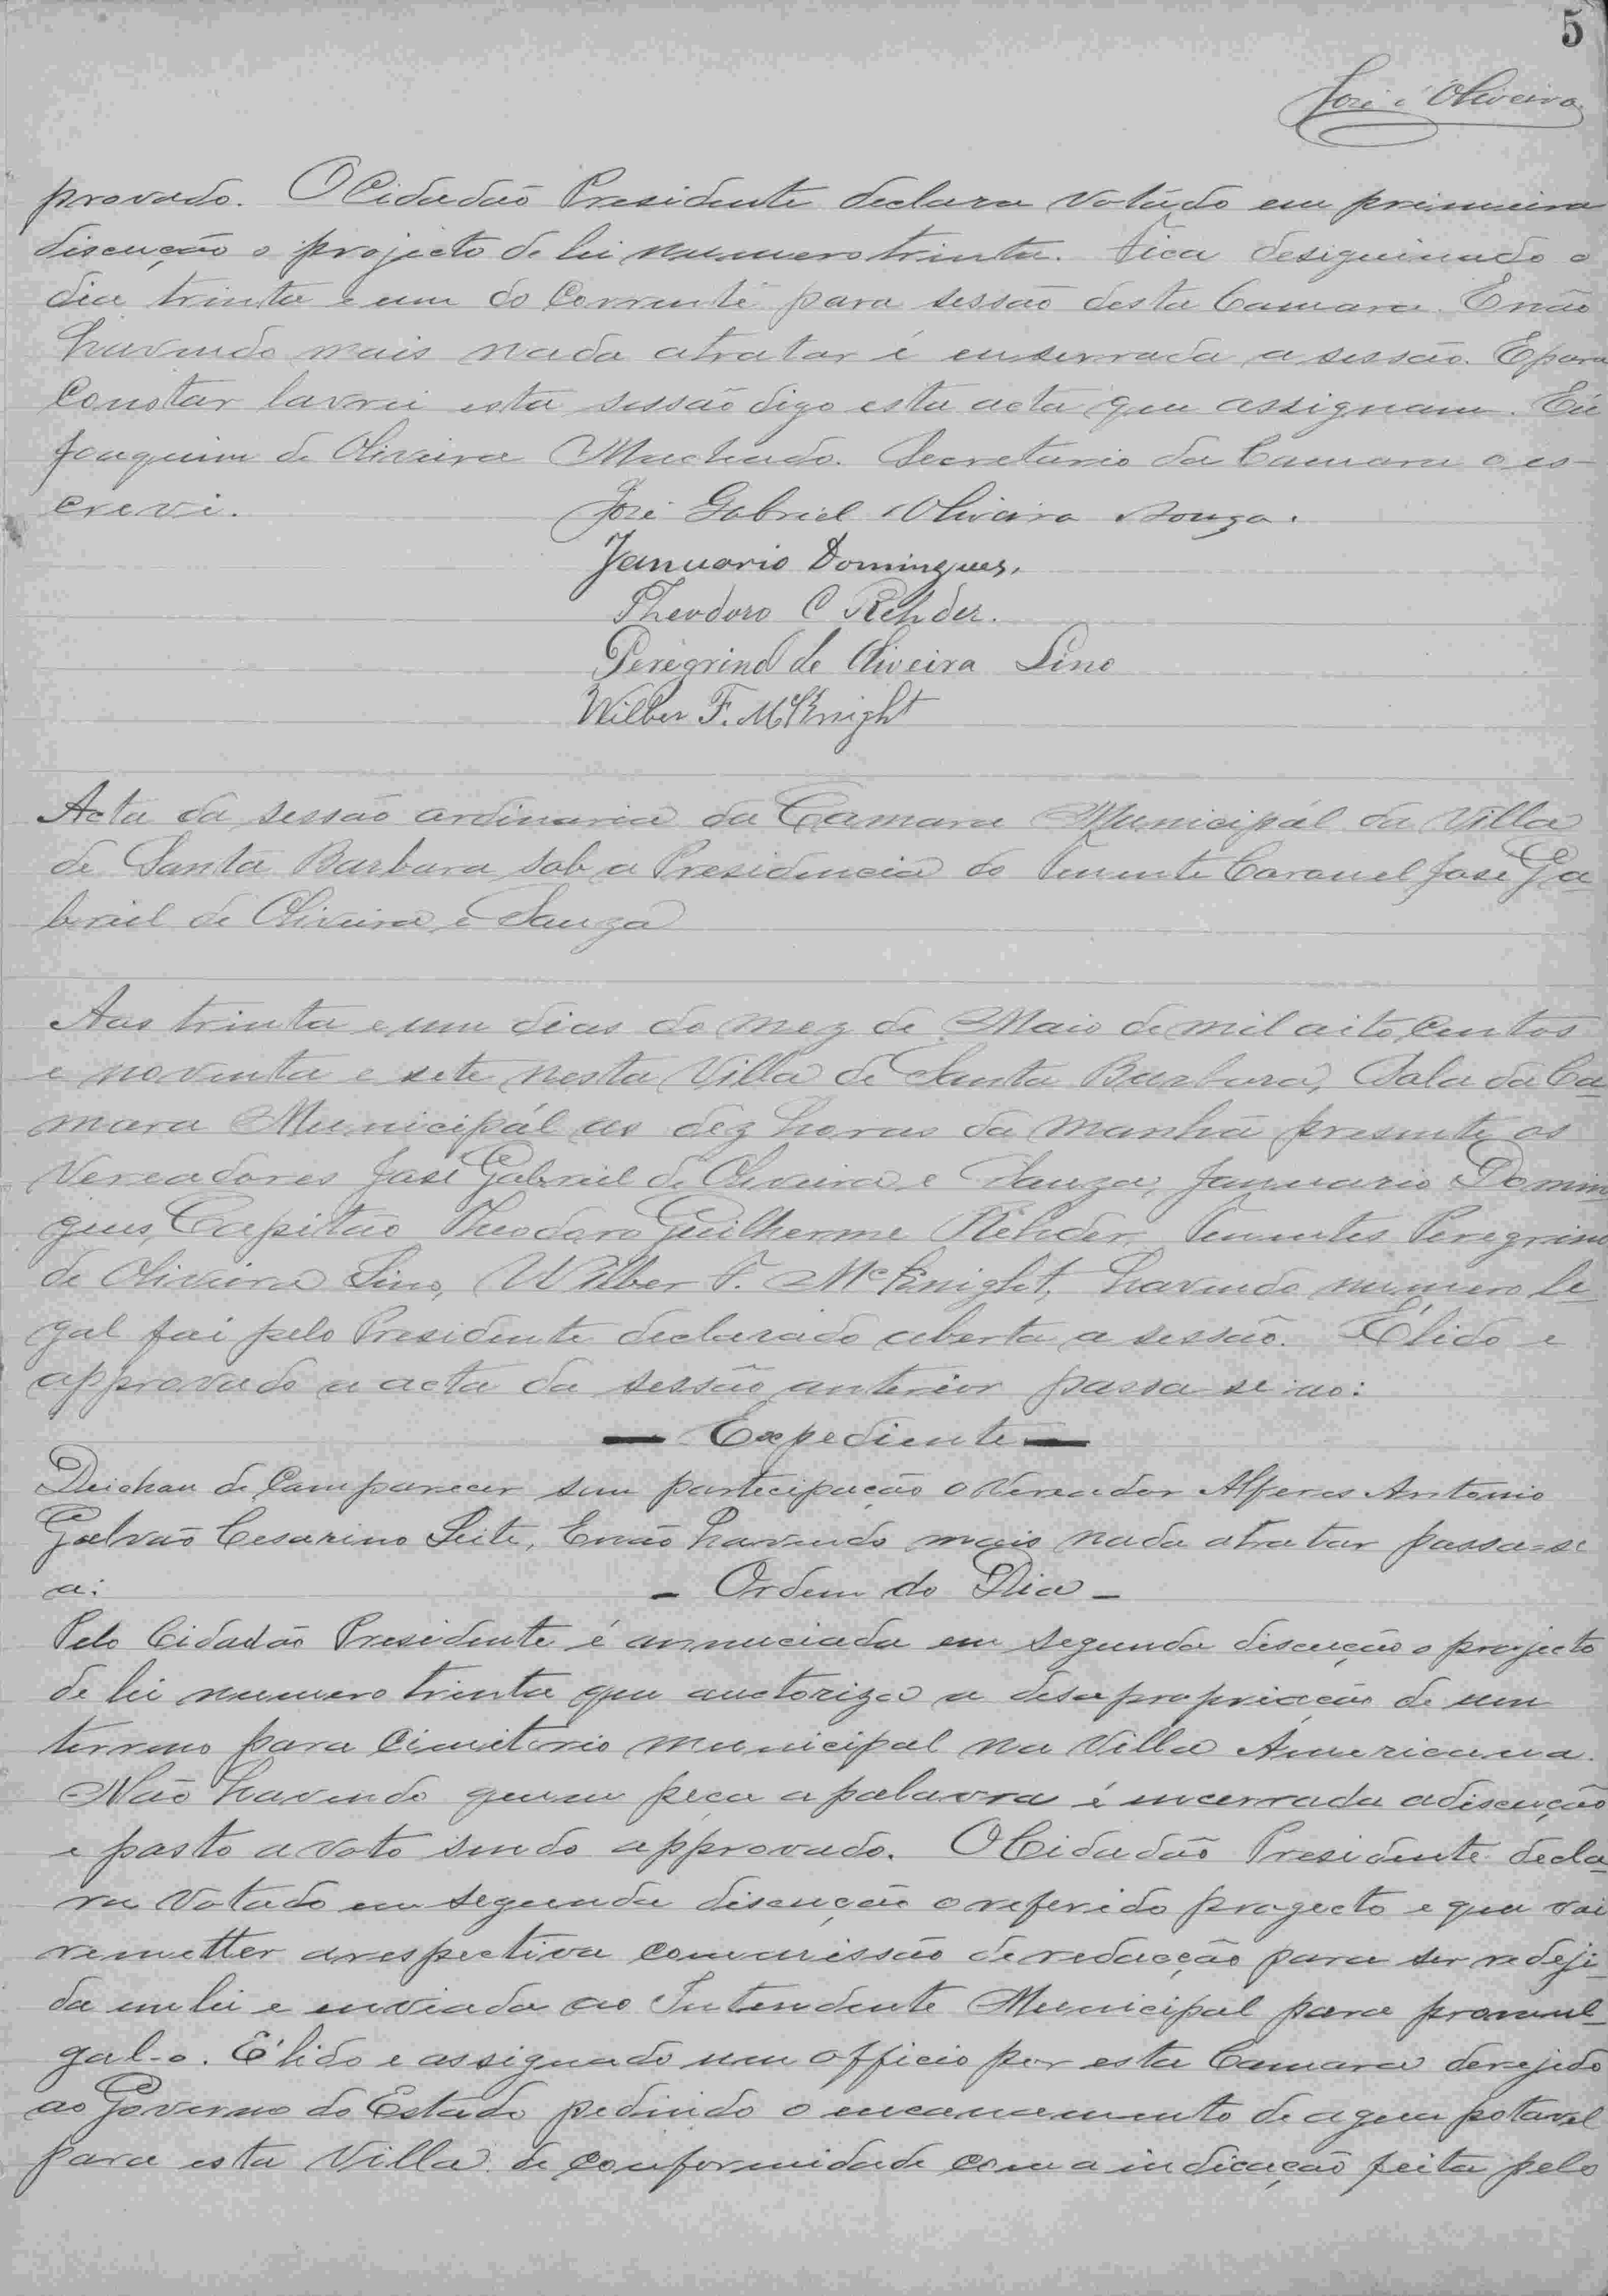 5
José e Oliveira
provado. O Cidadão Presidente declara votado em primeira
discução o projecto de lei numero trinta. Fica desiguinado o
dia trinta e um do Corrente para sessão desta Camara. E não
havendo mais nada atratar é enserrada a sessão. E para
Constar lavrei esta sessão digo esta acta que assignam. Eu
Joaquim de Oliveira Machado. Secretario da Camara o es-
crevi.
José Gabriel Oliveira Souza.
Januario Domingues,
Theodoro C Rehder.
Peregrino de Oliveira Lino
Wilber F. McKnight
Acta da sessão ordinaria da Camara Municipál da Villa
de Santa Barbara sob a Presidencia do Tenente Coronel José Ga
briel de Oliveira e Souza
Aos trinta e um dias do mez de Maio de mil oito Centos
e noventa e sete nesta Villa de Santa Barbara, Sala da Ca
mara Municipál as dez horas da manhã presente os
Vereadores José Gabriel de Oliveira e Souza, Januario Domin
gues, Capitão Theodoro Guilherme Rehder, Tenentes Peregrino
de Oliveira Lino, Wilber F. McKnight, havendo numero le
gal foi pelo Presidente declarado aberta a sessão. É lido e
approvado a acta da sessão anterior passa-se ao:
— Expediente —
Deichou de Comparecer sem participação o Vereador Alferes Antonio
Galvão Cesarino Leite, E não havendo mais nada atratar passa-se
a:
- Ordem do Dia -
Pelo Cidadão Presidente é annuciada em segunda discução o projecto
de lei numero trinta que auctoriza a desapropriacão de um
terreno para Cimiterio municipal na Villa Americana.
Não havendo quem peça a palavra é encerrada adiscução
e posto a voto sendo approvado. O Cidadão Presidente decla
ra Votado em segunda discução o referido progecto e que vai
remetter arespectiva commissão de redacção para ser rediji
da em lei e enviada ao Intendente Municipal para promul
gal-o. É lido e assignado um officio por esta Camara derejido
ao Governo do Estado pedindo o encanamento de agua potavel
para esta Villa de conformidade com a indicação feita pelo